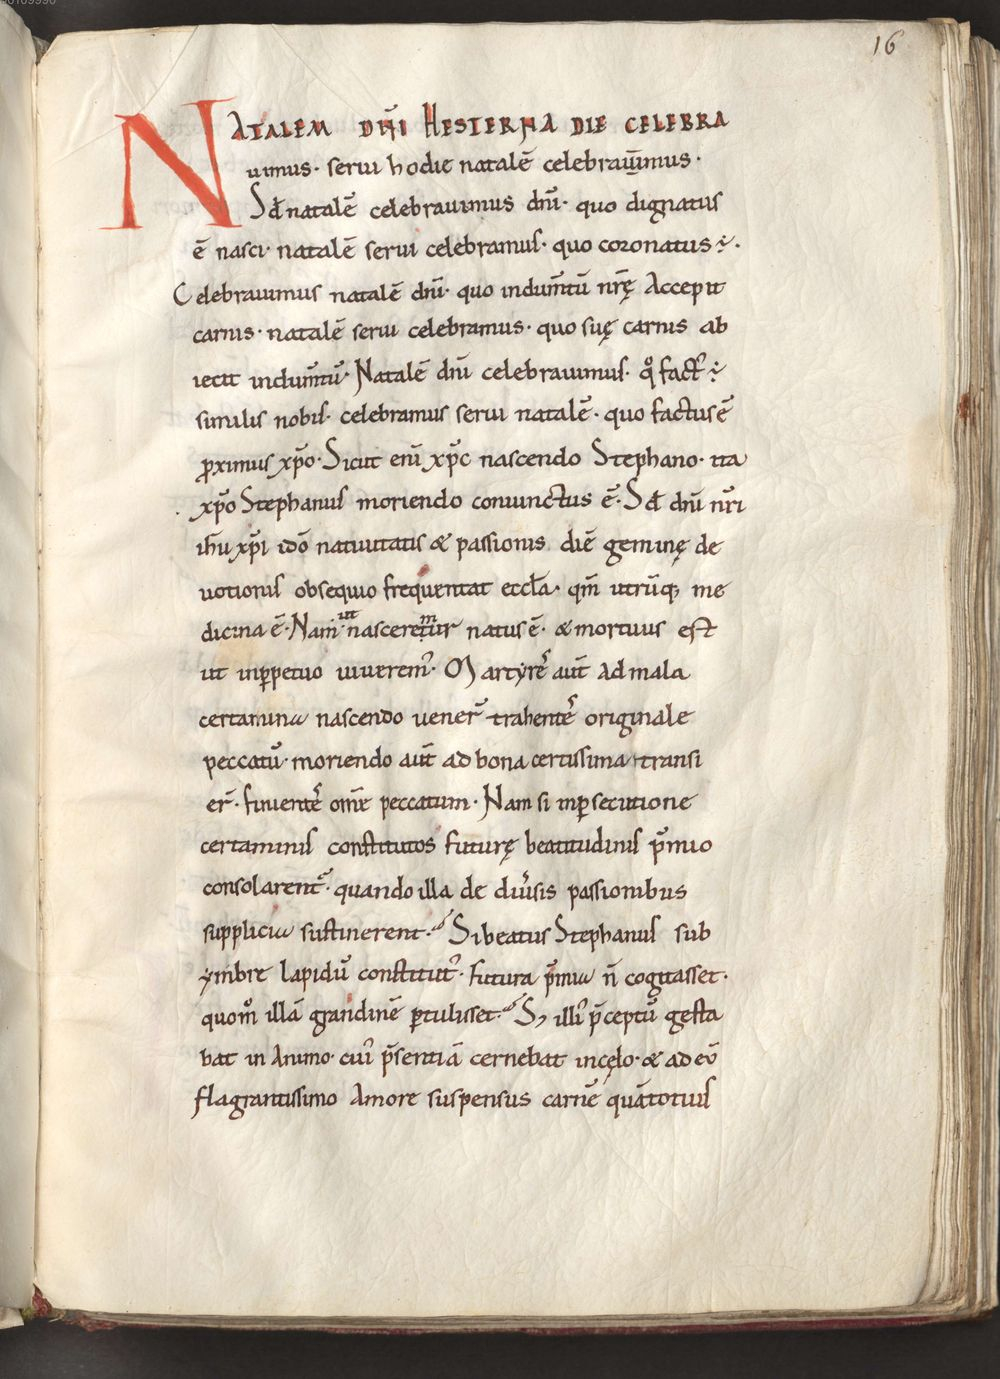 16
NATALEM DÑI HESTERNA DIE CELEBRA
uimus· serui hodie natalē celebrauimus·
Sđ natalē celebrauimus dn̄i· quo dignatus
ē nasci· natalē serui celebramus· quo coronatus ÷·
Celebrauimus natalē dn̄i· quo indum̄tū nr̄ę Accepit
carnis· natalē serui celebramus· quo suę carnis ab
iecit indum̄tū· Natalē dn̄i celebrauimus· qͦ fact᾿ ÷
similis nobis· celebramus serui natalē· quo factus ē
ꝓximus xp̄o· Sicut enī xp̄c nascendo Stephano· ita
xp̄o Stephanus moriendo coniunctus ē· Sđ dn̄i nr̄i
ih̄u xp̄i idō natiuitatis & passionis diē geminę de
uotionis obsequio frequentat eccl̄a· qm̄ utrūq; me
dicina ē· Nam ut nasceremur natus ē· & mortuus est
ut inꝑpetuo uiuerem᾿· Martyrēs aūt Ad mala
certamina nascendo uener̄ trahentēs originale
peccatū· moriendo aūt ad bona certissima transi
er̄· finientēs om̄e peccatum· Nam si inꝑsecutione
certaminis constitutos futurę beatitudinis p̄mio
consolarent᾿· quando illa de diu᾿sis passionibus
supplicia sustinerent· Si beatus Stephanus sub
ymbre lapidū constitut᾿· futura p̄mia n̄ cogitasset·
quom̊ illā grandinē ꝑtulisset· S; illi᾿ p̄ceptū gesta
bat in Animo· cui᾿ p̄sentiā cernebat incęlo· & ad eū
flagrantissimo Amore suspensus carnē quātotius